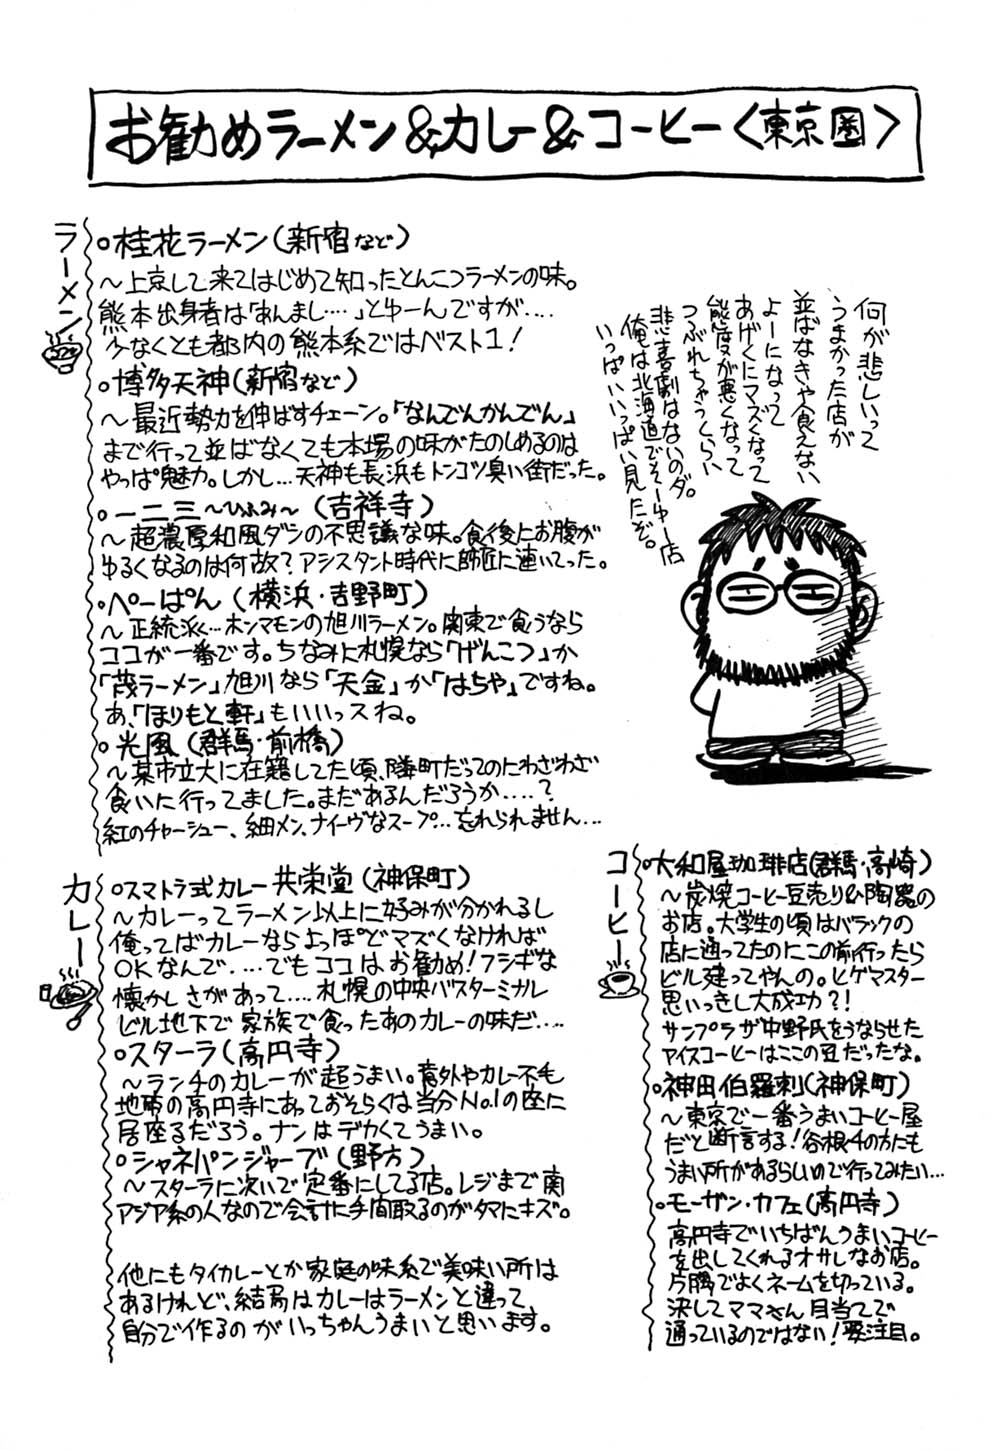 お勧めラーメン&カレー&コーヒー〈東京圏〉
ラーメン
○桂花ラーメン(新宿など)
〜上京して来てはじめて知ったとんこつラーメンの味。
熊本出身者は「あんまし‥‥」とゆーんですが‥‥
少なくとも都内の熊本系ではベスト1!
○博多天神(新宿など)
〜最近勢力を伸ばすチェーン。「なんでんかんでん」
まで行って並ばなくても本場の味がたのしめるのは
やっぱ魅力。しかし…天神も長浜もトンコツ臭い街だった。
○一二三〜ひふみ〜(吉祥寺)
〜超濃厚和風ダシの不思議な味。食後にお腹が
ゆるくなるのは何故?アシスタント時代に師匠に連いてった。
○ぺーぱん(横浜・吉野町)
〜正統派‥ホンマモンの旭川ラーメン。関東で食うなら
ココが一番です。ちなみに札幌なら「げんこつ」か
「茂ラーメン」旭川なら「天金」か「はちや」ですね。
あ、「ほりもと軒」もいいっスね。
○光風(群馬・前橋)
〜某市立大に在籍してた頃、隣町だってのにわざわざ
食いに行ってました。まだあるんだろうか‥‥?
紅のチャーシュー、細メン、ナイーヴなスープ…忘れられません…
何が悲しいって
うまかった店が
並ばなきゃ食えない
よーになって
あげくにマズくなって
態度が悪くなって
つぶれちゃうくらい
悲喜劇はないのダ。
俺は北海道でそーゆー店
いっぱいいっぱい見たぞ。
カレー
○スマトラ式カレー共栄堂(神保町)
〜カレーってラーメン以上に好みが分かれるし
俺ってばカレーならよっぽどマズくなければ
OKなんで‥‥でもココはお勧め!フシギな
懐かしさがあって‥‥札幌の中央バスターミナル
ビル地下で家族で食ったあのカレーの味だ‥‥
○スターラ(高円寺)
〜ランチのカレーが超うまい。意外やカレー不毛
地帯の高円寺にあっておそらくは当分No.1の座に
居座るだろう。ナンはデカくてうまい。
○シャネパンジャーブ(野方)
〜スターラに次いで定番にしてる店。レジまで南
アジア系の人なので会計に手間取るのがタマにキズ。
他にもタイカレーとか家庭の味系で美味い所は
あるけれど、結局はカレーはラーメンと違って
自分で作るのがいっちゃんうまいと思います。
コーヒー
○大和屋珈琲店(群馬・高崎)
〜炭焼コーヒー豆売り&陶器の
お店。大学生の頃はバラックの
店に通ってたのにこの前行ったら
ビル建ってやんの。ヒゲマスター
思いっきし大成功?!
サンプラザ中野氏をうならせた
アイスコーヒーはここの豆だったな。
○神田伯羅剌(神保町)
〜東京で一番うまいコーヒー屋
だと断言する!谷根千の方にも
うまい所があるらしいので行ってみたい…
○モーザン・カフェ(高円寺)
高円寺でいちばんうまいコーヒー
を出してくれるオサレなお店。
片隅でよくネームを切っている。
決してママさん目当てで
通っているのではない!要注目。